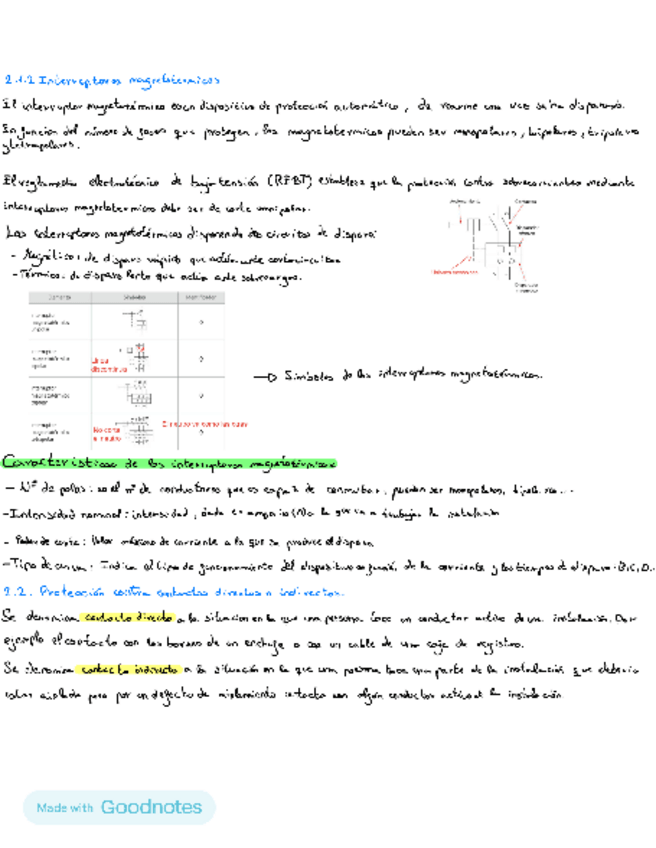 2.1.2 Interruptores magnetotérmicos
El interruptor magnetotérmico es un dispositivo de protección automático, de rearme una vez se ha disparado.
En función del número de fases que protegen, los magnetotérmicos pueden ser monopolares, bipolares, tripolares
y tetrapolares.
El reglamento electrotécnico de baja tensión (REBT) establece que la protección contra sobrecorrientes mediante
interruptores magnetotérmicos debe ser de corte omnipolar.
Los interruptores magnetotérmicos disponen de dos circuitos de disparo:
- Magnético: de disparo rápido que actúa ante cortocircuitos
- Térmico: de disparo lento que actúa ante sobrecargas.
Elemento Símbolos Identificador
Interruptor magnetotérmico unipolar Q
Interruptor magnetotérmico bipolar Línea discontinua Q
Interruptor magnetotérmico tripolar Q
Interruptor magnetotérmico tetrapolar No corta el neutro Q
→ Símbolos de los interruptores magnetotérmicos.
Características de los interruptores magnetotérmicos
- Nº de polos: es el nº de conductores que es capaz de conmutar, pueden ser monopolares, bipolares...
- Intensidad nominal: intensidad, dada en amperios (A) a la que va a trabajar la instalación
- Poder de corte: Valor máximo de corriente a la que se produce el disparo
- Tipo de curva: Indica el tipo de funcionamiento del dispositivo en función de la corriente y los tiempos de disparo. B, C, D.
2.2. Protección contra contactos directos e indirectos.
Se denomina contacto directo a la situación en la que una persona toca un conductor activo de una instalación. Por
ejemplo el contacto con los bornes de un enchufe o con un cable de una caja de registro.
Se denomina contacto indirecto a la situación en la que una persona toca una parte de la instalación que debería
estar aislada pero por un defecto de aislamiento contacta con algún conductor activo de la instalación.
Made with Goodnotes